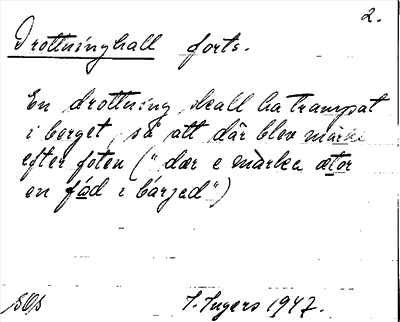 2.
Drottninghall forts.
En drottning skall ha trampat
i berget, så att där blev märke
efter foten ("dær e märka ætor
en fód i bárjed")
SOS
I. Ingers 1947.